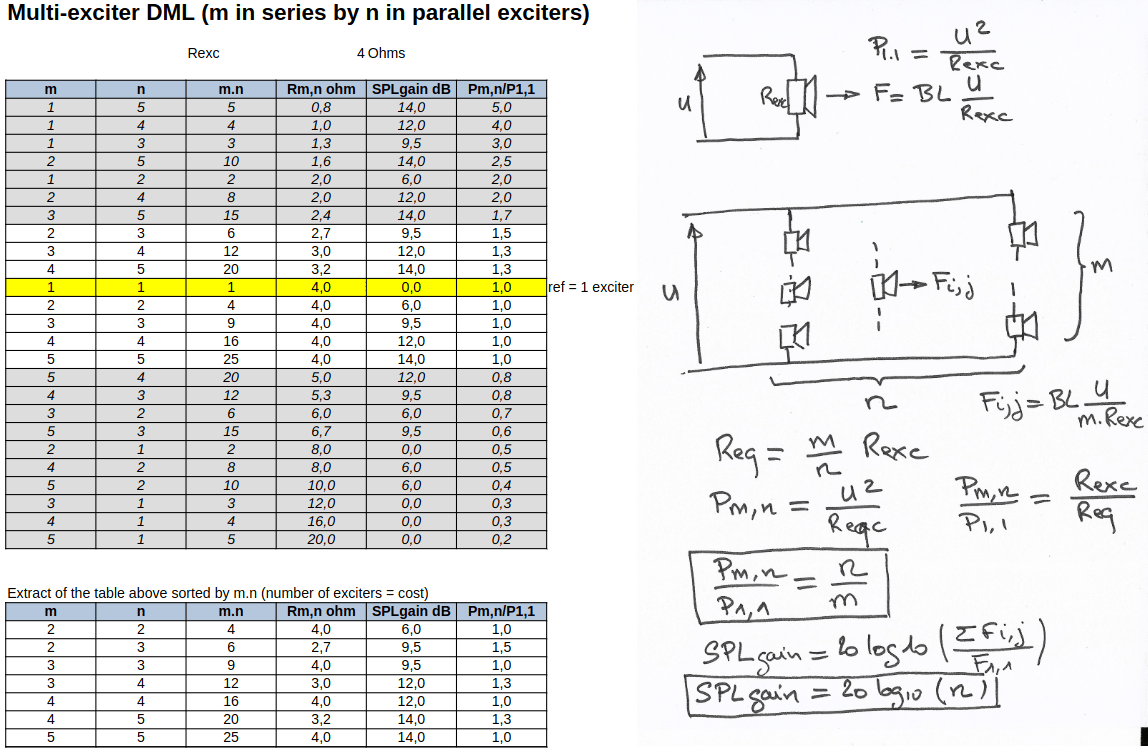 Multi-exciter DML (m in series by n in parallel exciters)
Rexc 4 Ohms
m n m.n Rm,n ohm SPLgain dB Pm,n/P1,1
1 5 5 0,8 14,0 5,0
1 4 4 1,0 12,0 4,0
1 3 3 1,3 9,5 3,0
2 5 10 1,6 14,0 2,5
1 2 2 2,0 6,0 2,0
2 4 8 2,0 12,0 2,0
3 5 15 2,4 14,0 1,7
2 3 6 2,7 9,5 1,5
3 4 12 3,0 12,0 1,3
4 5 20 3,2 14,0 1,3
1 1 1 4,0 0,0 1,0 ref = 1 exciter
2 2 4 4,0 6,0 1,0
3 3 9 4,0 9,5 1,0
4 4 16 4,0 12,0 1,0
5 5 25 4,0 14,0 1,0
5 4 20 5,0 12,0 0,8
4 3 12 5,3 9,5 0,8
3 2 6 6,0 6,0 0,7
5 3 15 6,7 9,5 0,6
2 1 2 8,0 0,0 0,5
4 2 8 8,0 6,0 0,5
5 2 10 10,0 6,0 0,4
3 1 3 12,0 0,0 0,3
4 1 4 16,0 0,0 0,3
5 1 5 20,0 0,0 0,2
Extract of the table above sorted by m.n (number of exciters = cost)
m n m.n Rm,n ohm SPLgain dB Pm,n/P1,1
2 2 4 4,0 6,0 1,0
2 3 6 2,7 9,5 1,5
3 3 9 4,0 9,5 1,0
3 4 12 3,0 12,0 1,3
4 4 16 4,0 12,0 1,0
4 5 20 3,2 14,0 1,3
5 5 25 4,0 14,0 1,0
P1.1 = u²/Rexc
u Rexc → F = BL u/Rexc
u → Fi,j m
n
Fi,j = BL u/m.Rexc
Req = m/n Rexc
Pm,n = u²/Reqc
Pm,n/P1,1 = Rexc/Req
Pm,n/P1,1 = n/m
SPLgain = 20 log10 (ΣFi,j/F1,1)
SPLgain = 20 log10 (n)